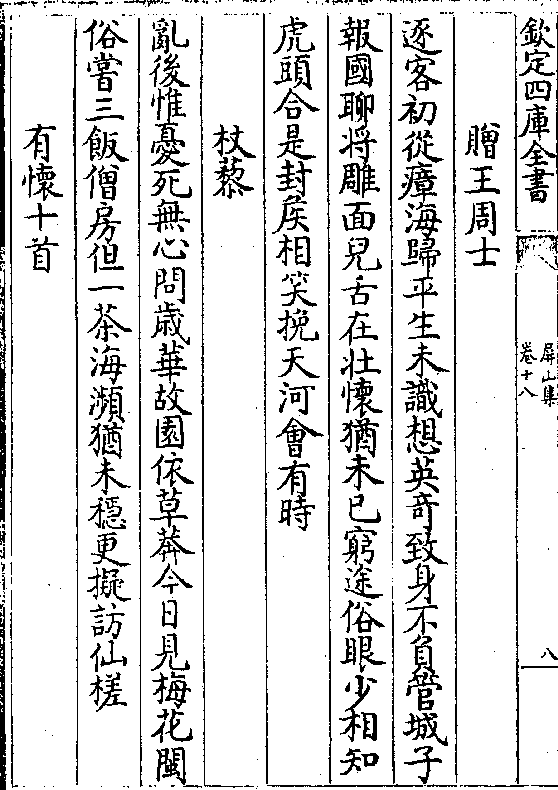 欽定四庫全書
屏山集
卷十八
八
贈王周士
逐客初從瘴海歸平生未識想英奇致身不負管城子
報國聊将雕面兒舌在壯懷猶未已窮途俗眼少相知
虎頭合是封侯相笑挽天河會有時
杖藜
亂後惟憂死無心問歳華故園依草莽今日見梅花閩
俗嘗三飯僧房但一茶海瀕猶未穩更擬訪仙槎
有懷十首